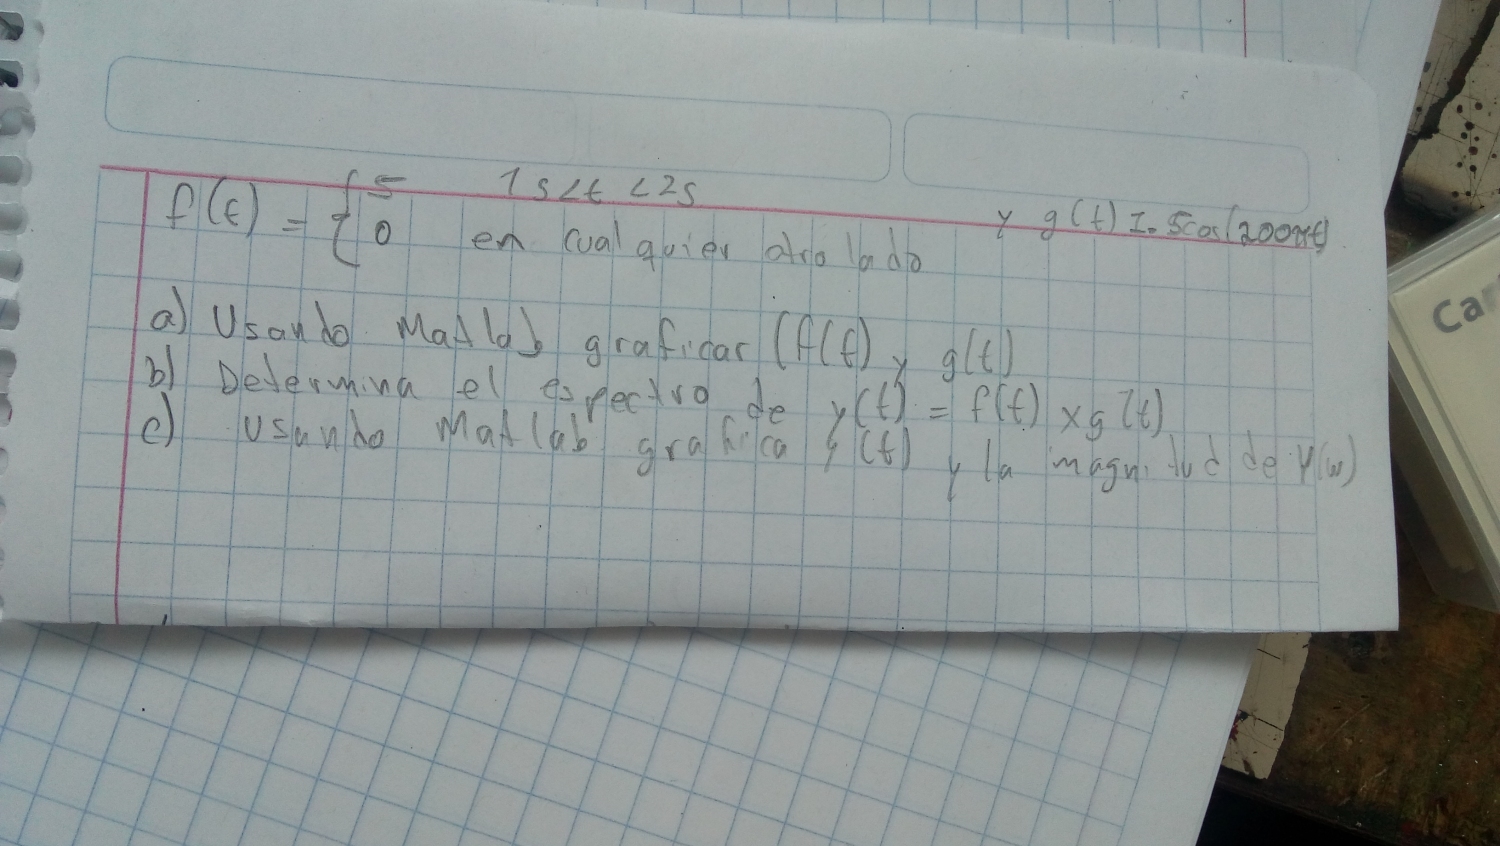 f(t) = { 5 1s<t <2s
0 en cualquier otro lado y g(t) I. 5cos(200πt)
a) Usando Matlab graficar (f(t) y g(t)
b) Determina el espectro de y(t) = f(t) x g(t)
c) Usando Matlab grafica y(t) y la magnitud de Y(w)
Ca